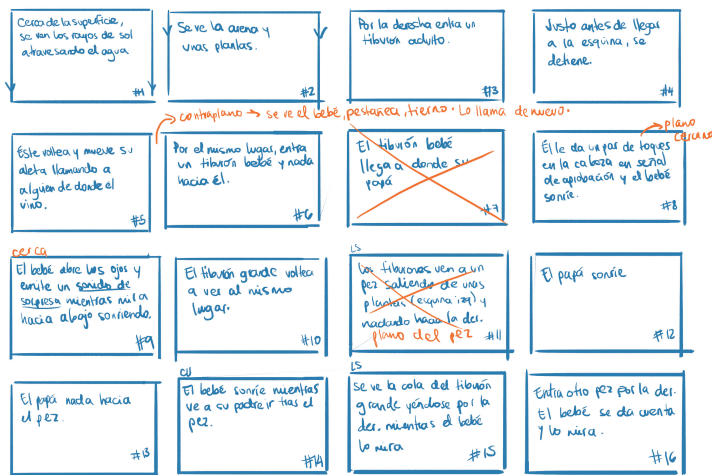 Cerca de la superficie,
se ven los rayos de sol
atravesando el agua
#1
Se ve la arena y
unas plantas.
#2
Por la derecha entra un
tiburón adulto.
#3
Justo antes de llegar
a la esquina, se
detiene.
#4
contraplano → se ve el bebé, pestañea, tierno. Lo llama de nuevo.
plano
cercano
Éste voltea y mueve su
aleta llamando a
alguien de donde el
vino.
#5
Por el mismo lugar, entra
un tiburón bebé y nada
hacia él.
#6
El tiburón bebé
llega a donde su
papá
#7
Él le da un par de toques
en la cabeza en señal
de aprobación y el bebé
sonríe.
#8
cerca
El bebé abre los ojos y
emite un sonido de
sorpresa mientras mira
hacia abajo sonriendo.
#9
El tiburón grande voltea
a ver al mismo
lugar.
#10
LS
Los tiburones ven a un
pez saliendo de unas
plantas (esquina izq) y
nadando hacia la der.
plano del pez
#11
El papá sonríe
#12
El papá nada hacia
el pez.
#13
CU
El bebé sonríe mientras
ve a su padre ir tras el
pez.
#14
LS
Se ve la cola del tiburón
grande yéndose por la
der. mientras el bebé
lo mira
#15
Entra otro pez por la der.
El bebé se da cuenta
y lo mira.
#16